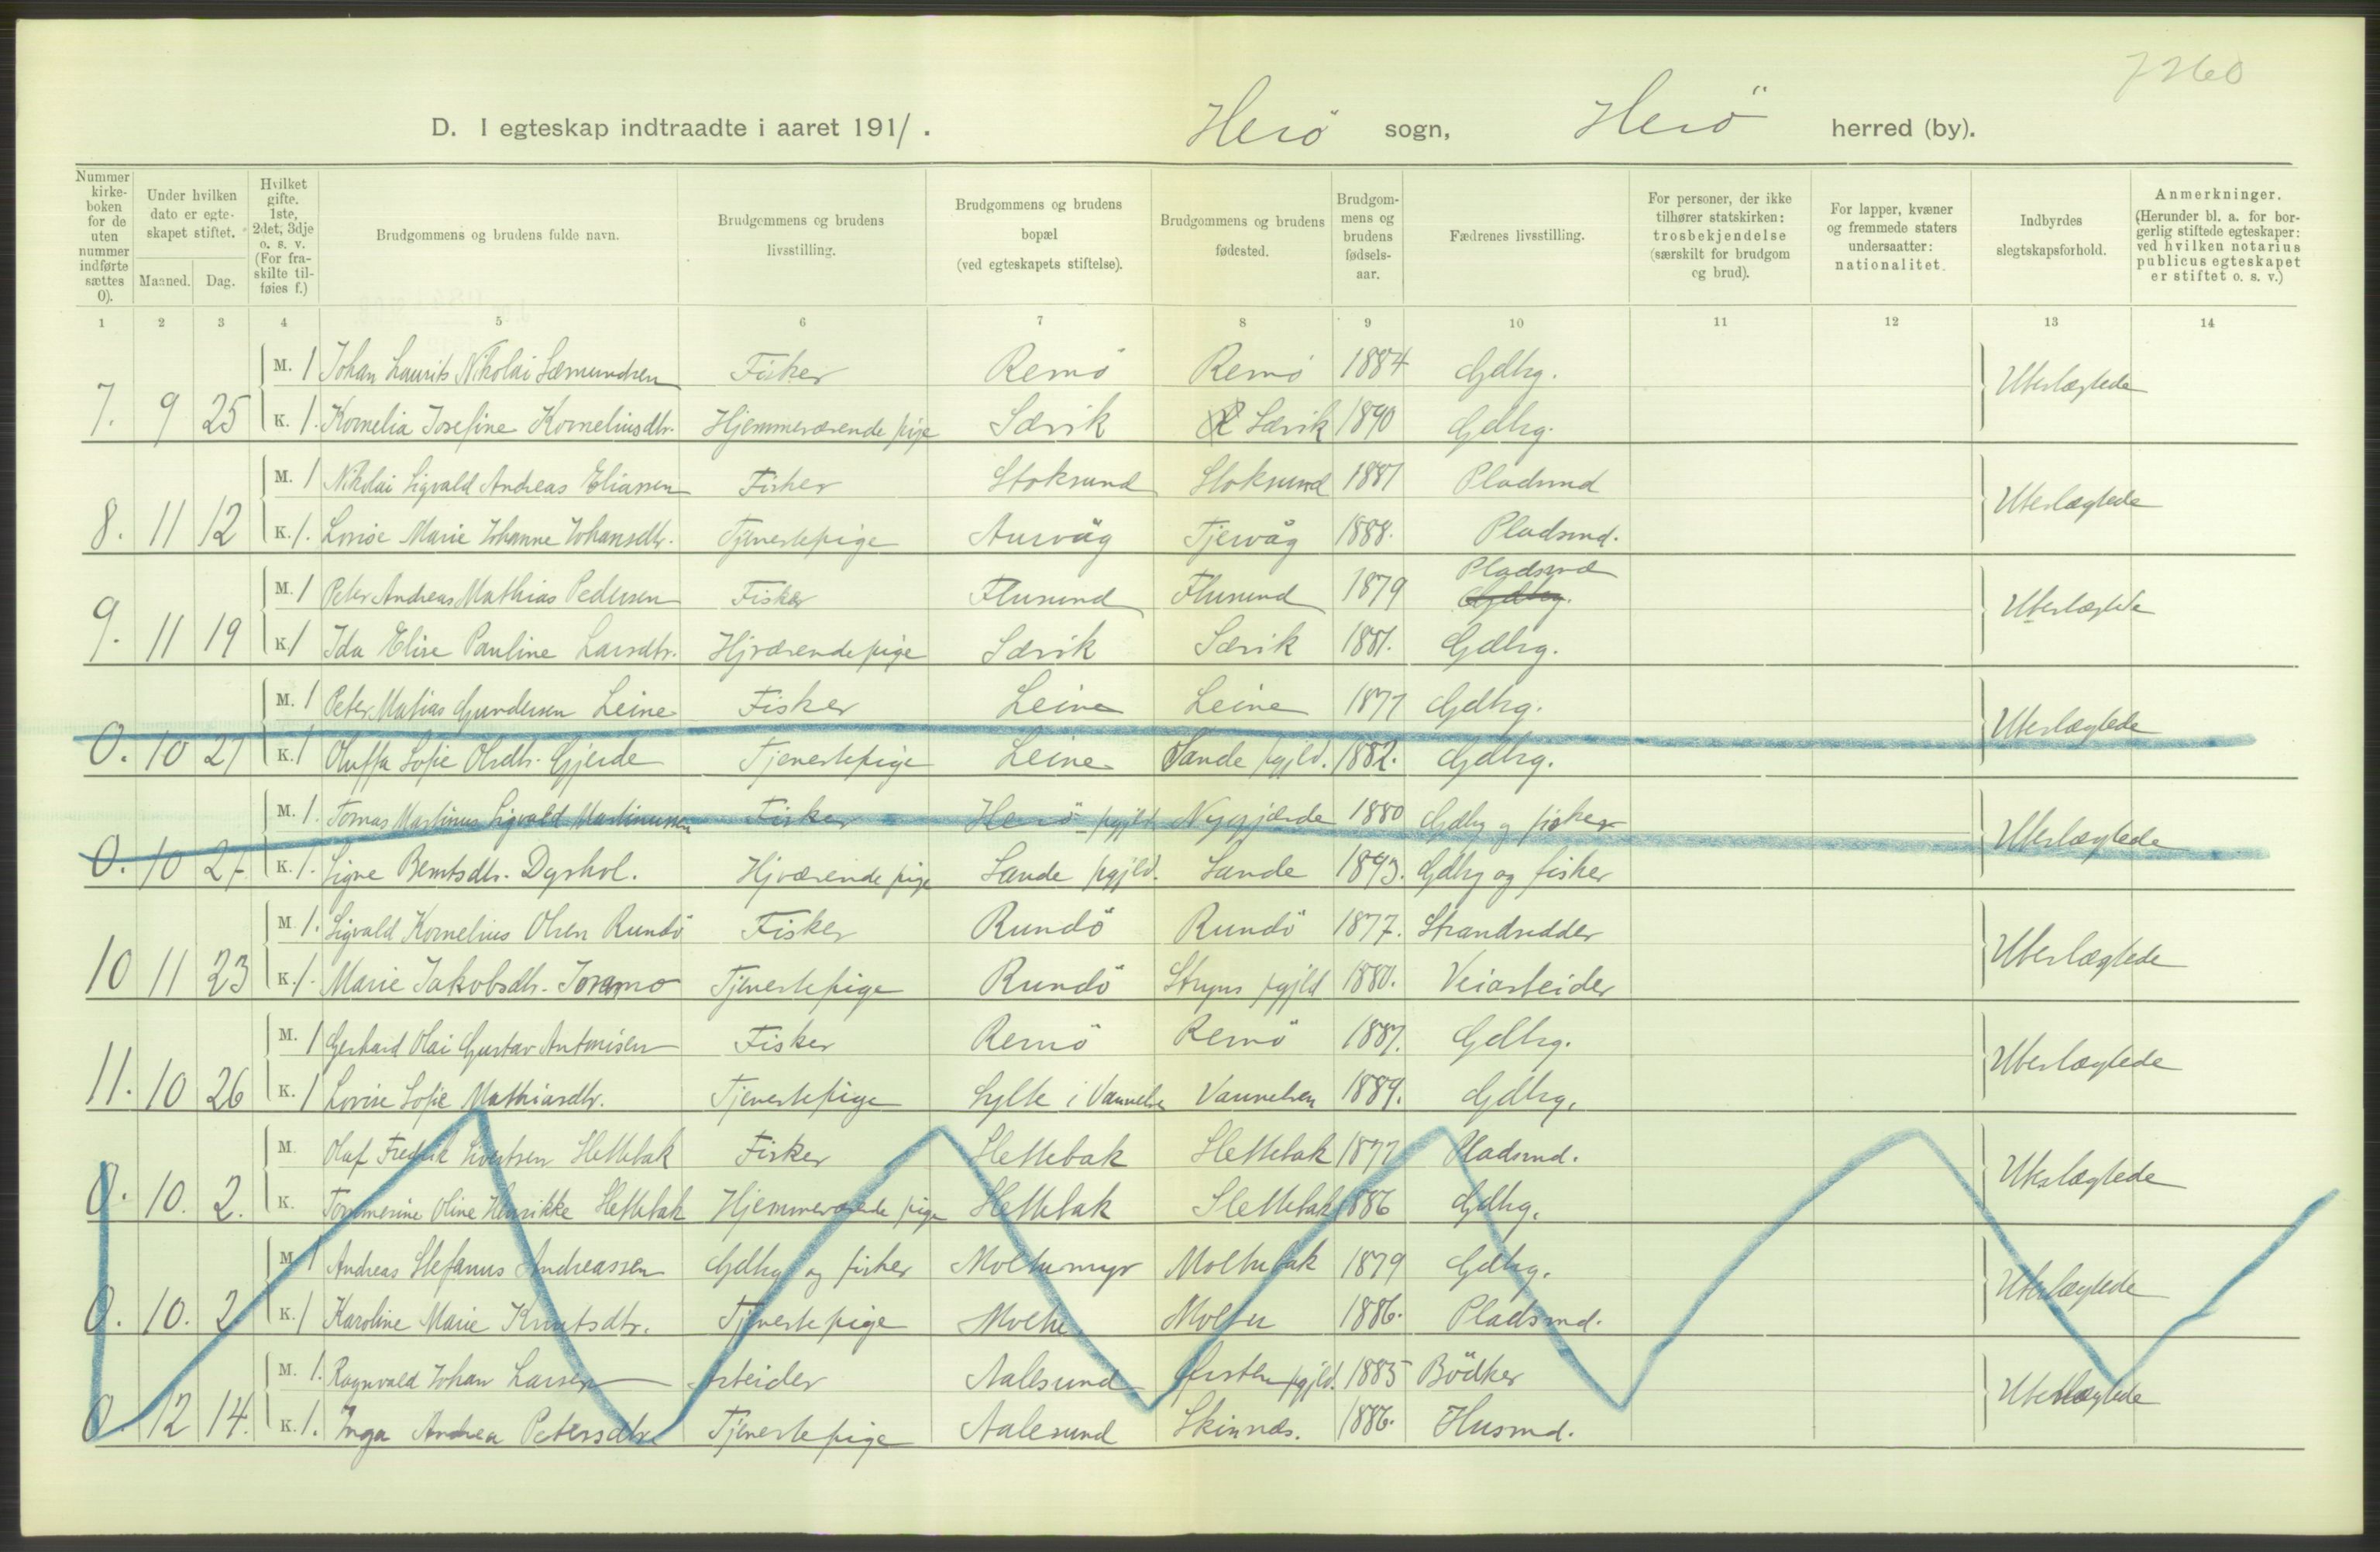 7260
D. I egteskap indtraadte i aaret 1911. Herö sogn, Herö herred (by).
Nummer kirkeboken for de uten nummer indførte sættes 0).
Under hvilken dato er egteskapet stiftet.
Maaned. Dag.
Hvilket gifte. 1ste, 2det, 3dje o. s. v. (For fraskilte tilføies f.)
Brudgommens og brudens fulde navn.
Brudgommens og brudens livsstilling.
Brudgommens og brudens bopæl (ved egteskapets stiftelse).
Brudgommens og brudens fødested.
Brudgommens og brudens fødselsaar.
Fædrenes livsstilling.
For personer, der ikke tilhører statskirken: trosbekjendelse (særskilt for brudgom og brud).
For lapper, kvæner og fremmede staters undersaatter: nationalitet.
Indbyrdes slegtskapsforhold.
Anmerkninger. (Herunder bl. a. for borgerlig stiftede egteskaper: ved hvilken notarius publicus egteskapet er stiftet o. s. v.)
1 2 3 4 5 6 7 8 9 10 11 12 13 14
M. 1 Johan Laurits Nikolai Sæmundsen Fisker Remö Remö 1884 Gdbrg. Ubeslægtede
7. 9 25 K. 1. Kornelia Josefine Korneliusdtr. Hjemmeværende pige Sævik Sævik 1890 Gdbrg.
M. 1 Nikolai Sigvald Andreas Eliassen Fisker Stoksund Stoksund 1881 Pladsmd Ubeslægtede
8. 11 12 K. 1. Lovise Marie Johanne Johansdtr. Tjenestepige Aurvåg Tjervåg 1888. Pladsmd.
M. 1 Peter Andreas Mathias Pedersen Fisker Flusund Flusund 1879 Pladsmd Gdbrg. Ubeslægtede
9. 11 19 K. 1 Ida Elise Pauline Larsdtr. Hjværende pige Sævik Sævik 1881. Gdbrg.
M. 1 Peter Matias Gundersen Leine Fisker Leine Leine 1877 Gdbrg. Ubeslægtede
0. 10 27 K. 1 Oluffa Sofie Olsdtr. Gjerde Tjenestepige Leine Sande pgjld. 1882. Gdbrg.
M. 1. Tomas Martinus Sigvald Martinussen Fisker Herö pgjld Nygjærde 1880 Gdbrg og fisker Ubeslægtede
0. 10 27 K. 1. Signe Berntsdtr. Dyrhol. Hjværende pige Sande pgjld. Sande 1893. Gdbrg og fisker
M. 1. Sigvald Kornelius Olsen Rundö Fisker Rundö Rundö 1877. Strandsidder Ubeslægtede
10 11 23 K. 1. Marie Jakobsdtr. Tjenestepige Rundö Stryns pgjld 1880. Veiarbeider
M. 1 Gerhard Olai Gustav Antonisen Fisker Remö Remö 1887. Gdbrg. Ubeslægtede
11. 10 26 K. 1 Lovise Sofie Mathiasdtr. Tjenestepige Sylte i Vannelven Vannelven 1889. Gdbrg.
M. Olaf Fredrik Sivertsen Slettebak Fisker Slettebak Slettebak 1877 Pladsmd. Ubeslægtede
0. 10. 2. K. Tommerine Oline Henrikke Slettebak Hjemmeværende pige Slettebak Slettebak 1886 Gdbrg.
M. 1 Andreas Stefanus Andreassen Gdbrg og fisker Moltumyr Moltubak 1879 Gdbrg. Ubeslægtede
0. 10. 2 K. 1 Karoline Marie Knutsdtr. Tjenestepige Moltu Moltu 1886. Pladsmd.
M. 1. Ragnvald Johan Larsen Arbeider Aalesund Örsten pgjld. 1885 Bödker Ubeslægtede
0. 12 14. K. 1. Inga Andrea Petersdtr. Tjenestepige Aalesund Skinnæs. 1886. Husmd.